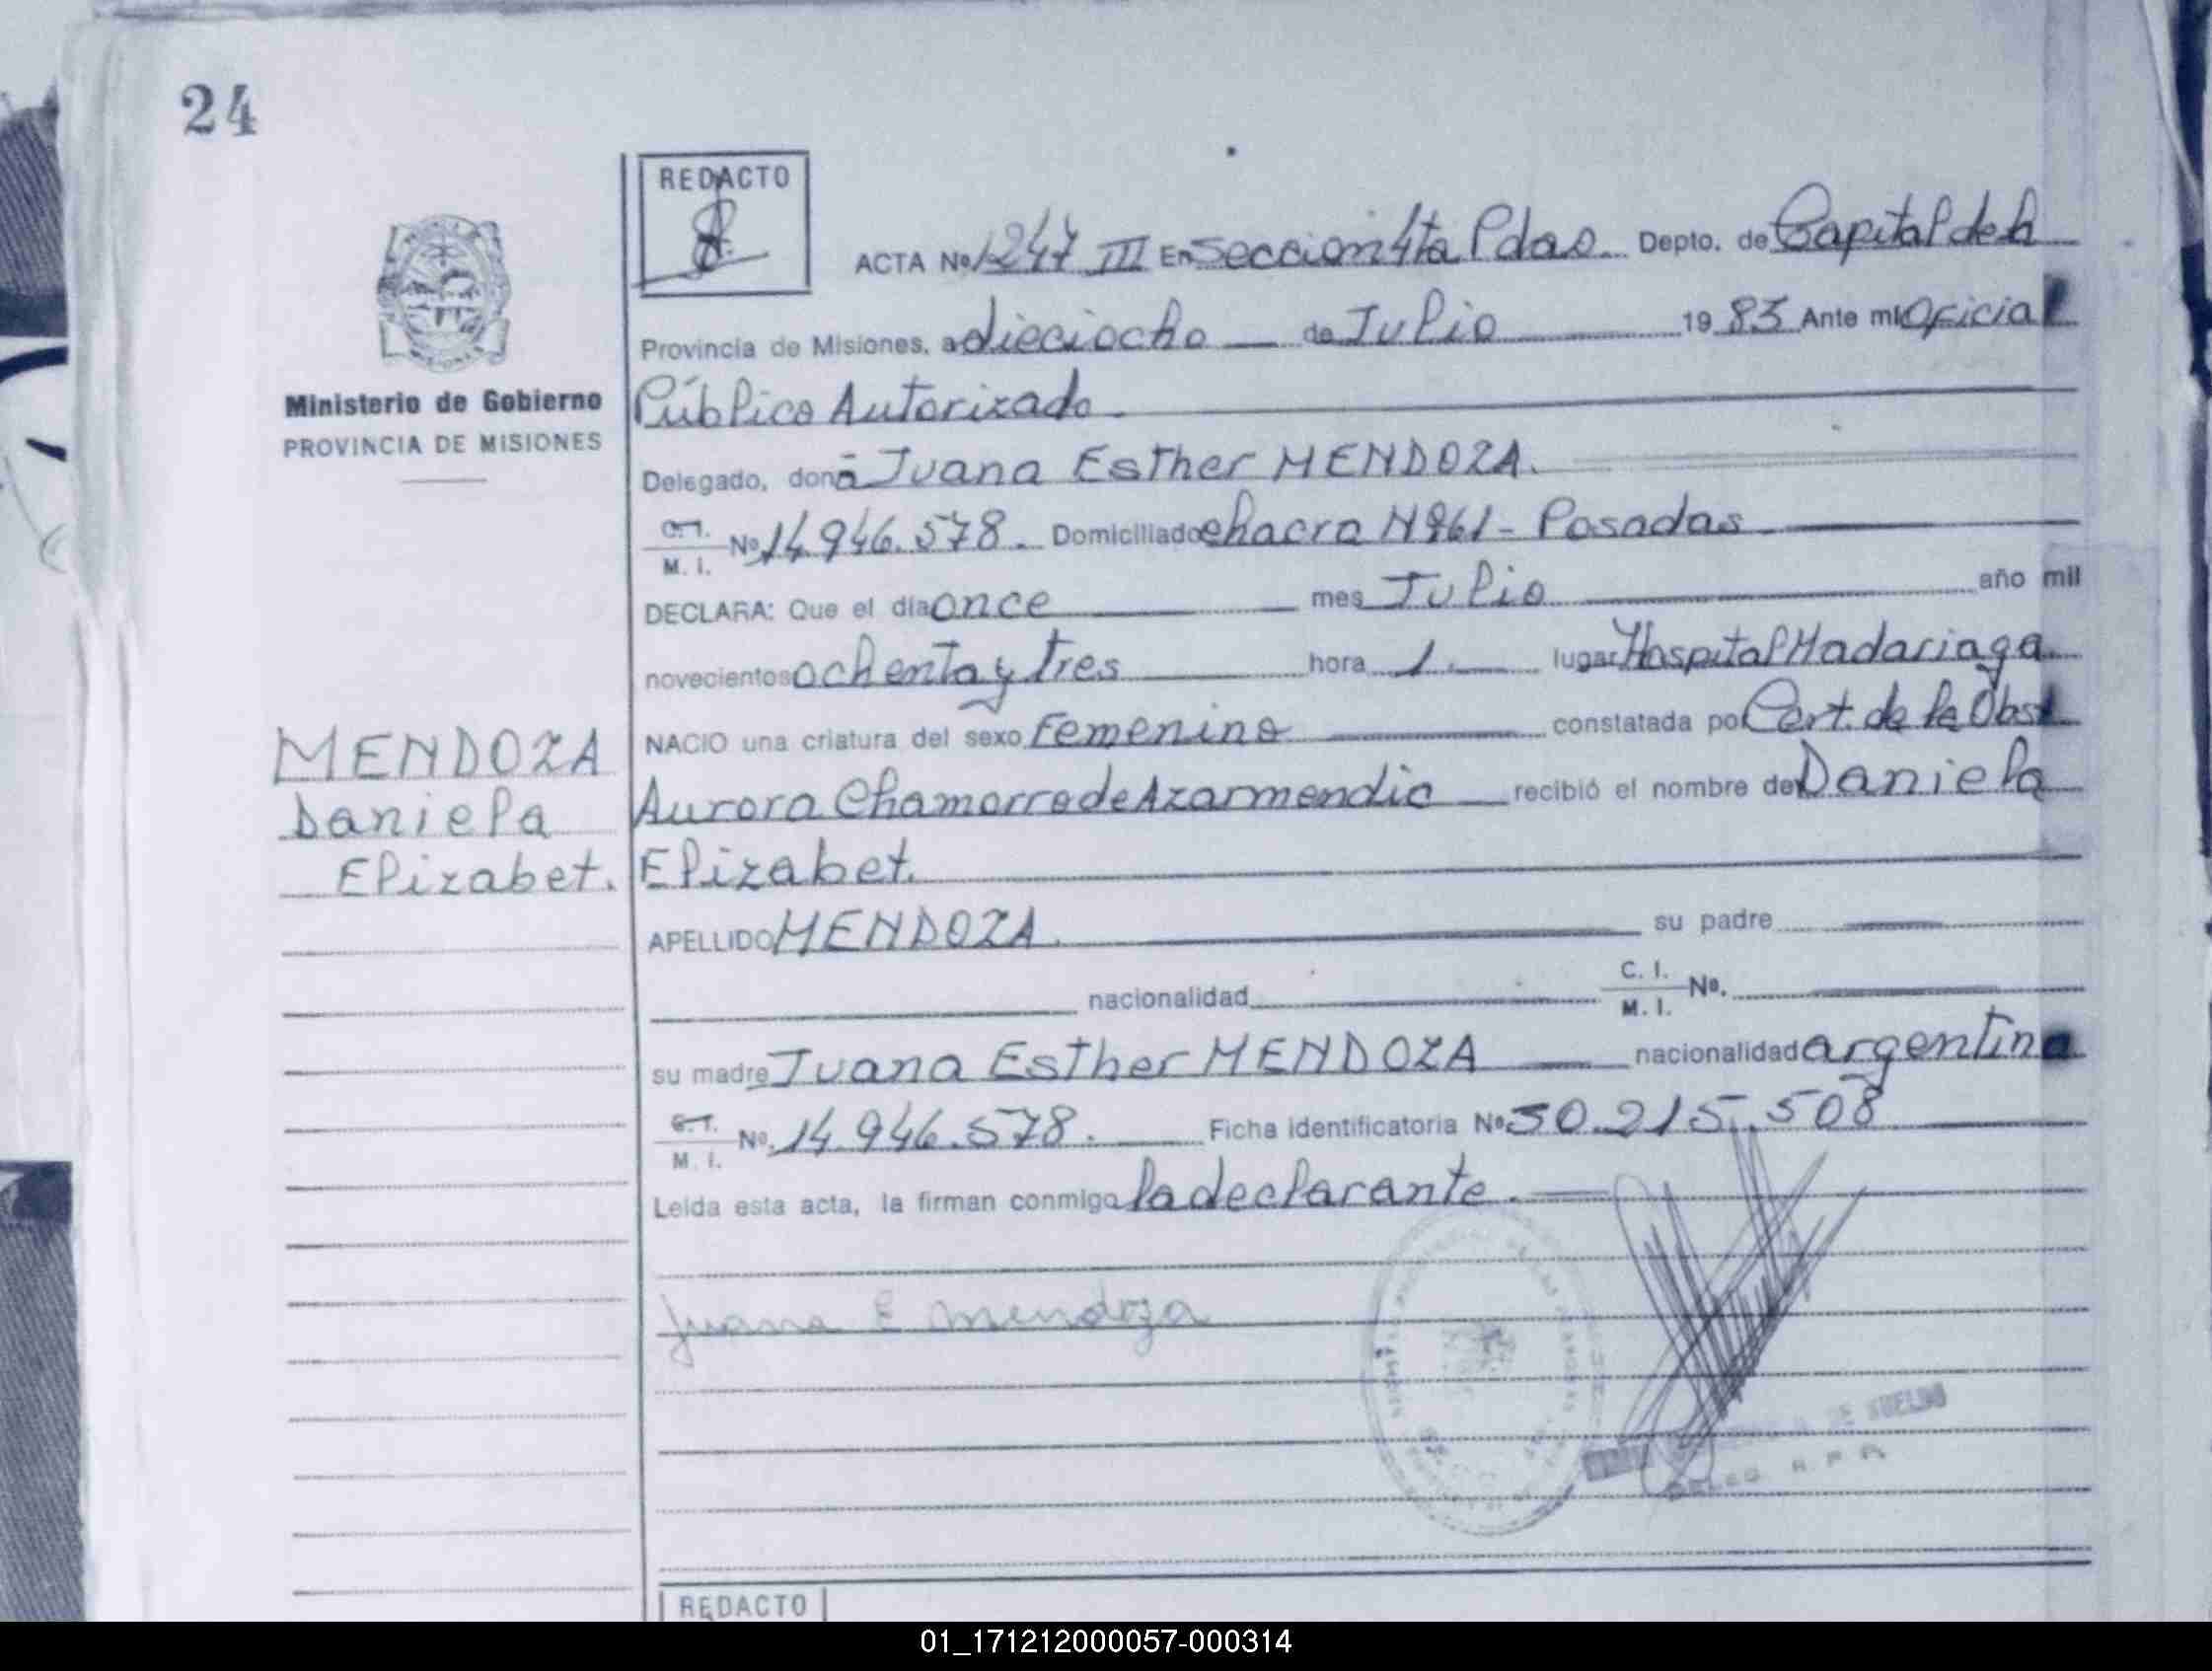 24
REDACTO
ACTA Nº 1247 III En Seccion 4ta Pdas. Depto. de Capital de la
Provincia de Misiones, a dieciocho de Julio 1983 Ante mi Oficial
Ministerio de Gobierno
PROVINCIA DE MISIONES
Público Autorizado.
Delegado, doña Juana Esther MENDOZA.
C.I. M. I. Nº 14.946.578. Domiciliado chacra Nº61 - Posadas
DECLARA: Que el día once mes Julio año mil
novecientos ochenta y tres hora 1. lugar Hospital Madariaga
NACIO una criatura del sexo Femenino constatada por Cert. de la Obst.
MENDOZA
Daniela
Elizabet.
Aurora Chamorro de Azarmendia recibió el nombre de Daniela
Elizabet.
APELLIDO MENDOZA. su padre
nacionalidad C. I. M. I. Nº.
su madre Juana Esther MENDOZA nacionalidad argentina
C.I. M. I. Nº. 14.946.578. Ficha identificatoria Nº 30.215.508
Leída esta acta, la firman conmigo la declarante.
Juana E mendoza
DE SUELDO
DELEG. R. P.
REDACTO
01_171212000057-000314